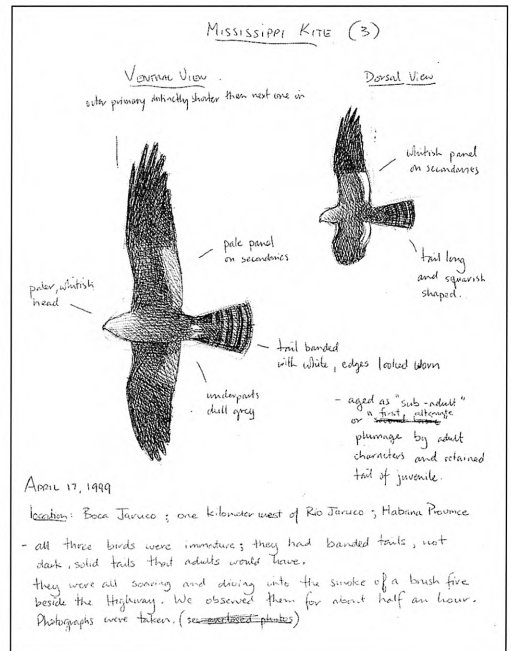 MISSISSIPPI KITE (3)
VENTRAL VIEW
outer primary distinctly shorter than next one in
Dorsal View
whitish panel
on secondaries
pale panel
on secondaries
paler, whitish
head
tail long
and squarish
shaped.
tail banded
with white, edges looked worn
underparts
dull grey
- aged as "sub-adult"
or a first, alternate
plumage by adult
characters and retained
tail of juvenile.
APRIL 17, 1999
location: Boca Jaruco ; one kilometer west of Rio Jaruco ; Habana Province
- all three birds were immature; they had banded tails, not
dark, solid tails that adults would have.
they were all soaring and diving into the smoke of a brush fire
beside the Highway. We observed them for about half an hour.
Photographs were taken. (see enclosed photos)